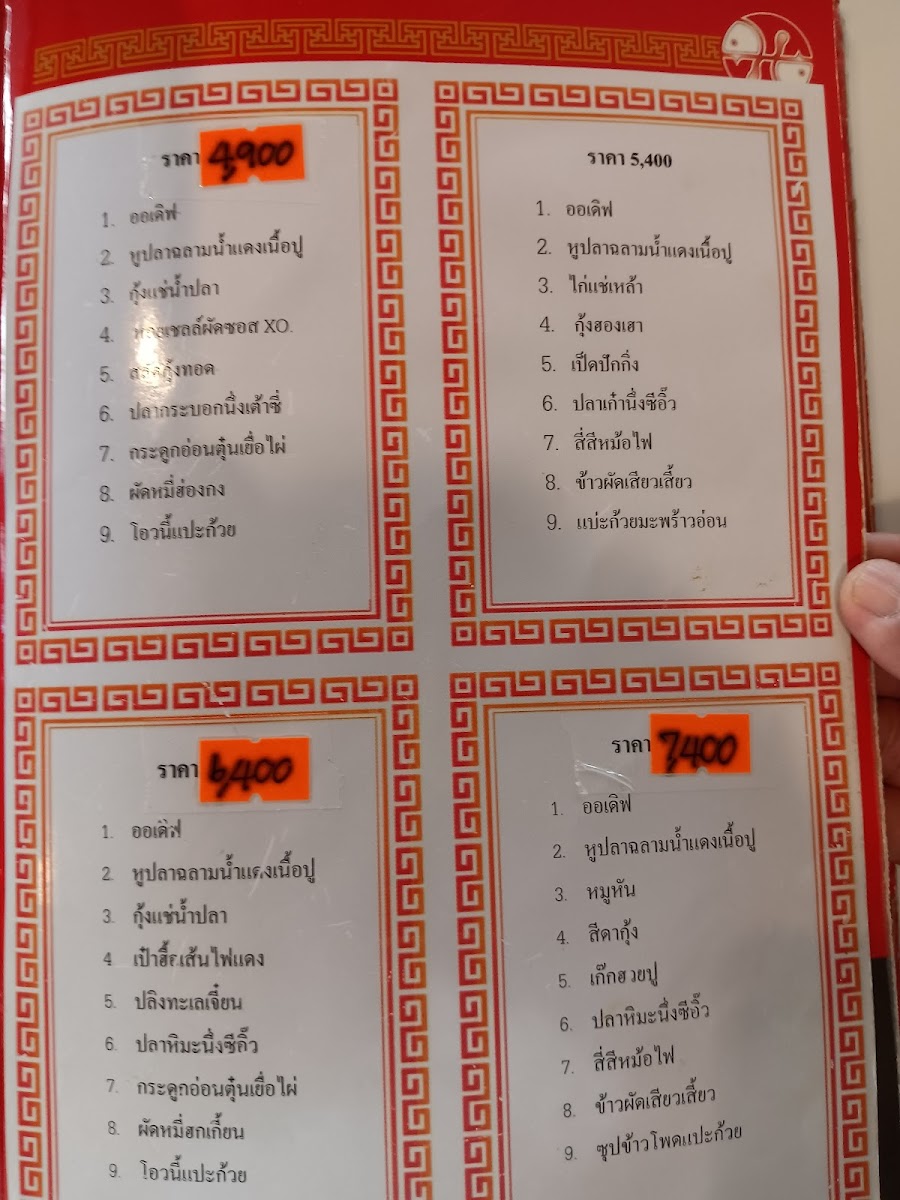 ราคา 4,900
1. ออเดิฟ
2. หูปลาฉลามน้ำแดงเนื้อปู
3. กุ้งแช่น้ำปลา
4. หอยเชลล์ผัดซอส XO.
5. สลัดกุ้งทอด
6. ปลากระบอกนึ่งเต้าซี่
7. กระดูกอ่อนตุ๋นเยื่อไผ่
8. ผัดหมี่ฮ่องกง
9. โอวนี้แปะก้วย
ราคา 5,400
1. ออเดิฟ
2. หูปลาฉลามน้ำแดงเนื้อปู
3. ไก่แช่เหล้า
4. กุ้งฮองเฮา
5. เป็ดปักกิ่ง
6. ปลาเก๋านึ่งซีอิ๊ว
7. สี่สีหม้อไฟ
8. ข้าวผัดเสียวเสี้ยว
9. แบ่ะก้วยมะพร้าวอ่อน
ราคา 6,400
1. ออเดิฟ
2. หูปลาฉลามน้ำแดงเนื้อปู
3. กุ้งแช่น้ำปลา
4 เป๋าฮื้อเส้นไฟแดง
5. ปลิงทะเลเจี๋ยน
6. ปลาหิมะนึ่งซีอิ๊ว
7. กระดูกอ่อนตุ๋นเยื่อไผ่
8. ผัดหมี่ฮกเกี้ยน
9. โอวนี้แปะก้วย
ราคา 7,400
1. ออเดิฟ
2. หูปลาฉลามน้ำแดงเนื้อปู
3. หมูหัน
4. สีดากุ้ง
5. เก๊กฮวยปู
6. ปลาหิมะนึ่งซีอิ๊ว
7. สี่สีหม้อไฟ
8. ข้าวผัดเสียวเสี้ยว
9. ซุปข้าวโพดแปะก้วย